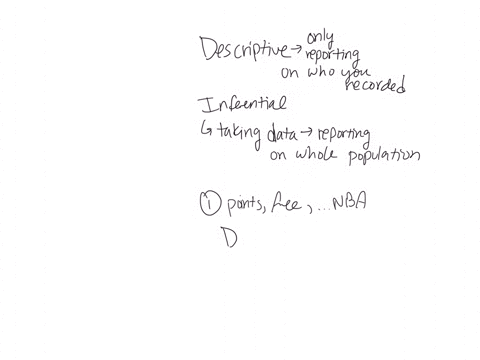 Descriptive → only
reporting
on who you
recorded
Infeential
↳ taking data → reporting
on whole population
① points, free, ... NBA
D